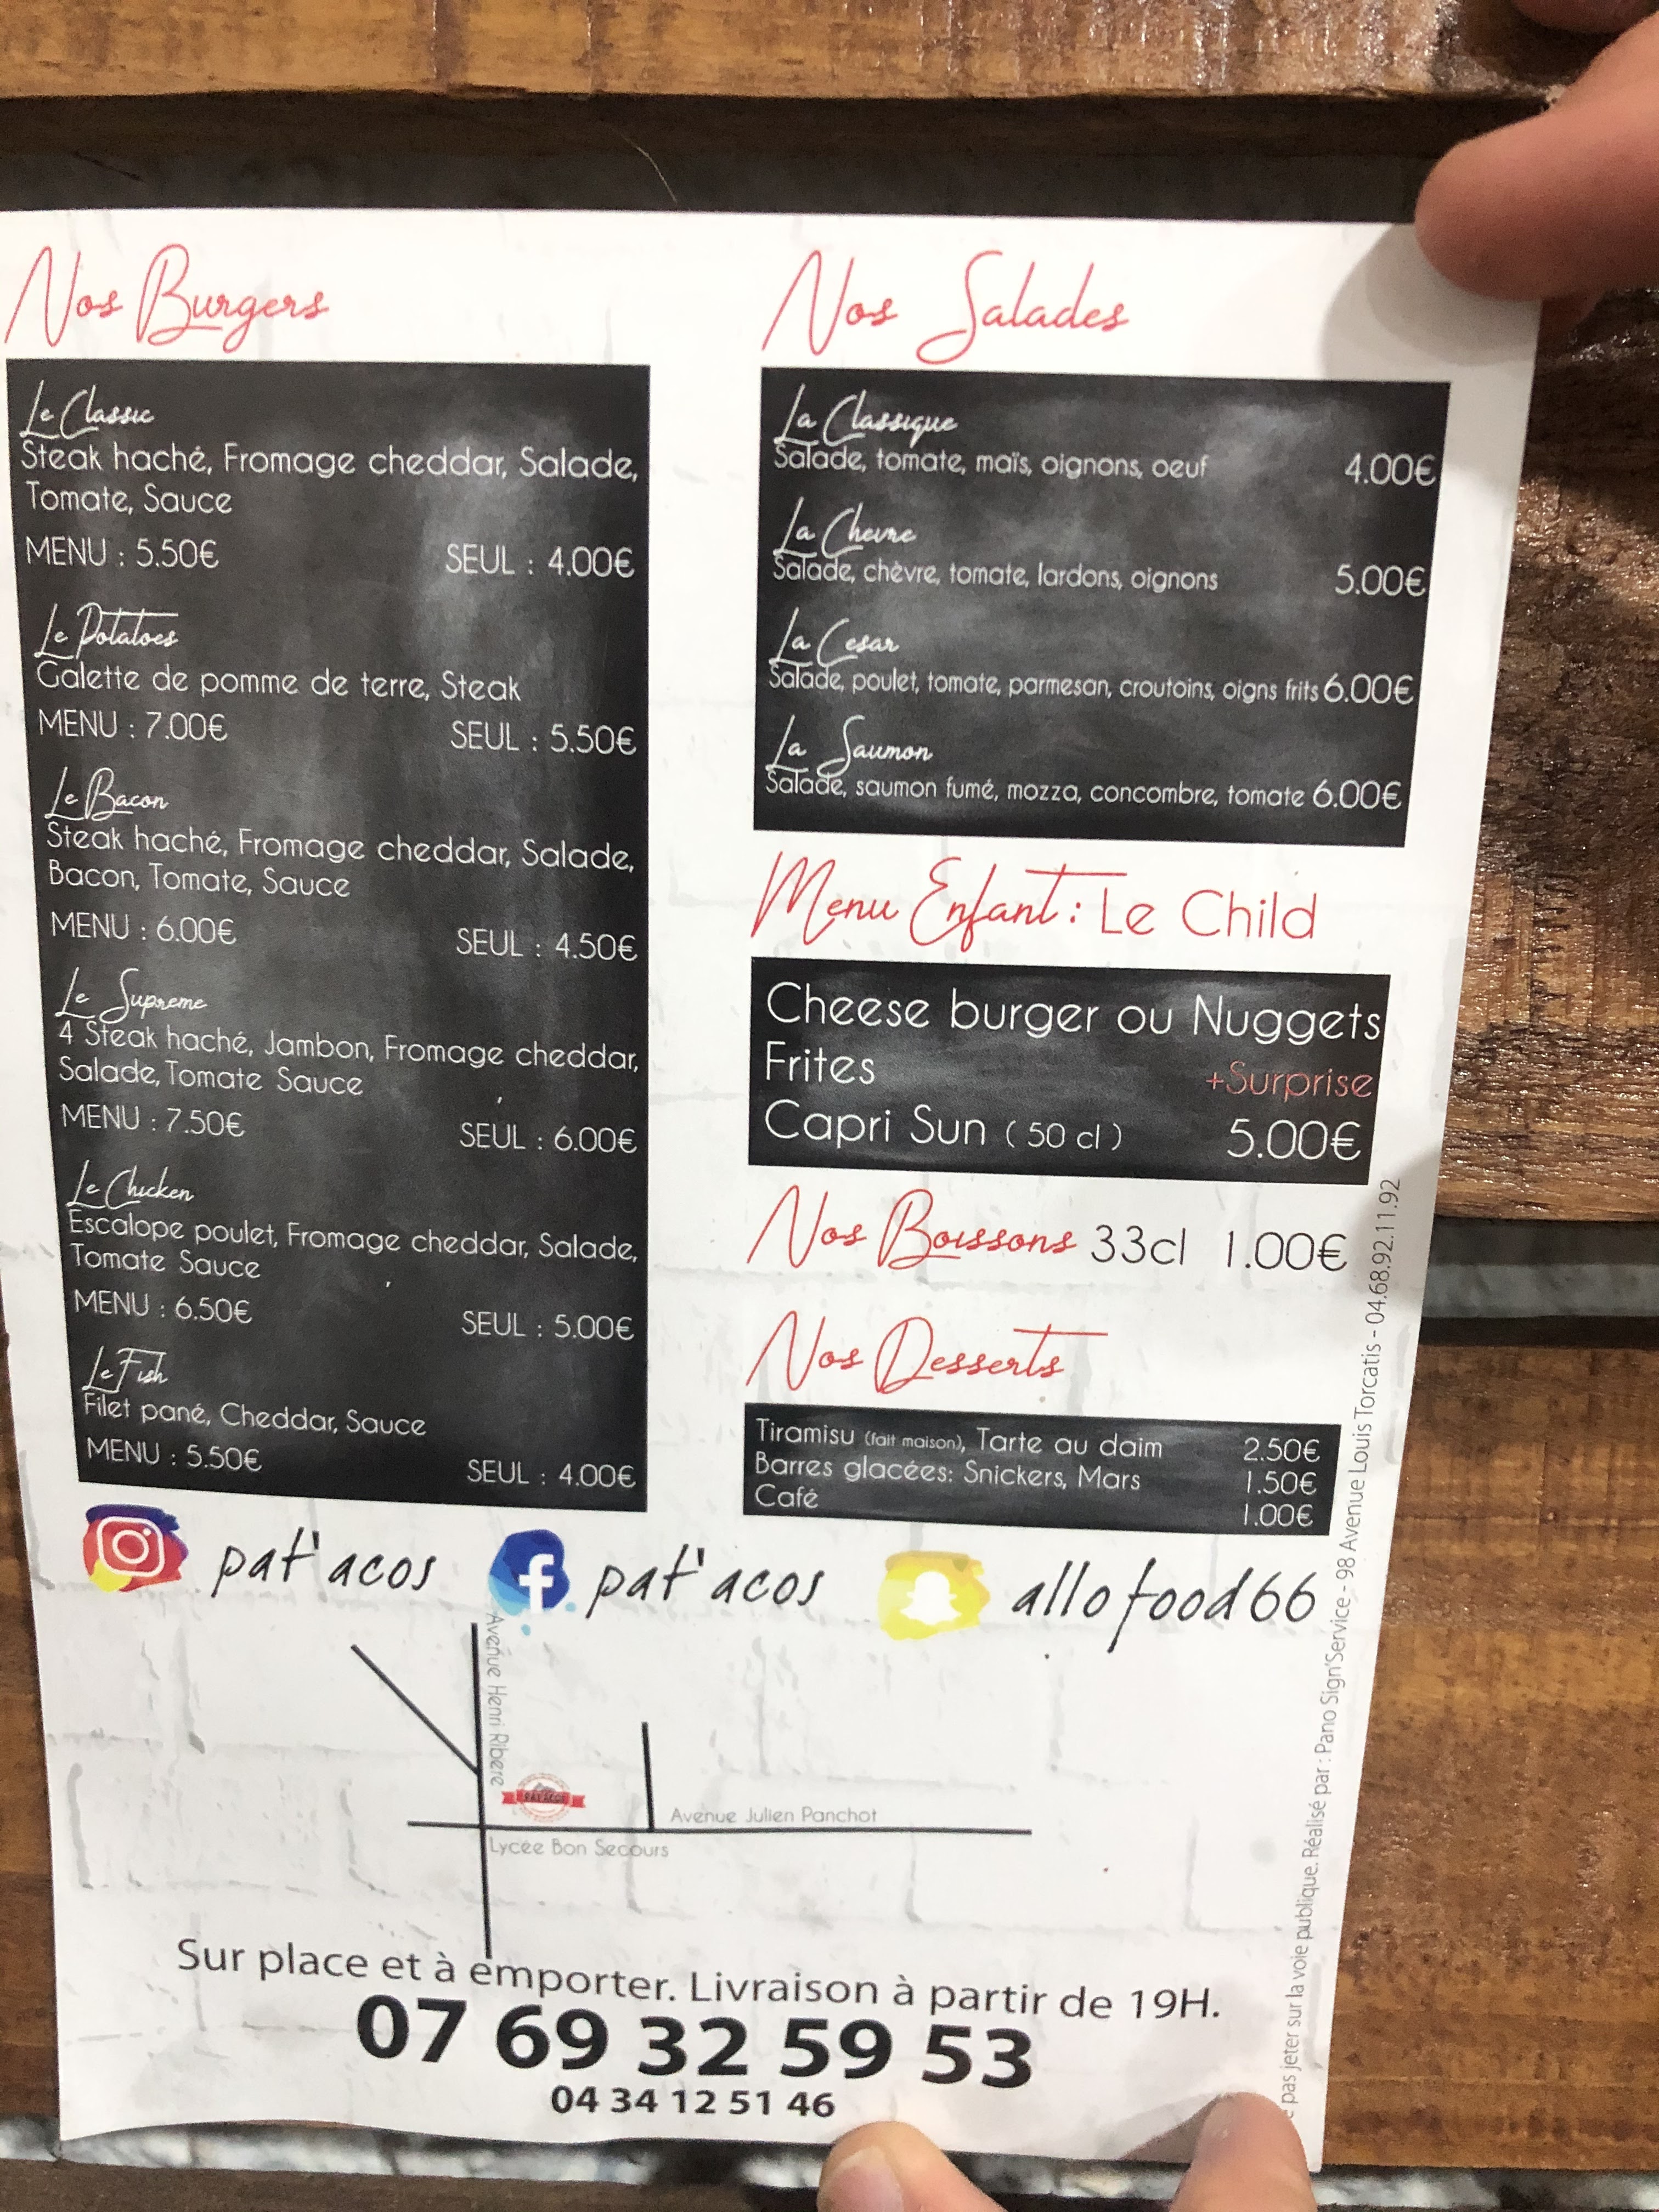 Nos Burgers
Le Classic
Steak haché, Fromage cheddar, Salade,
Tomate, Sauce
MENU : 5.50€ SEUL : 4.00€
Le Potatoes
Galette de pomme de terre, Steak
MENU : 7.00€ SEUL : 5.50€
Le Bacon
Steak haché, Fromage cheddar, Salade,
Bacon, Tomate, Sauce
MENU : 6.00€ SEUL : 4.50€
Le Supreme
4 Steak haché, Jambon, Fromage cheddar,
Salade, Tomate Sauce
MENU : 7.50€ SEUL : 6.00€
Le Chicken
Escalope poulet, Fromage cheddar, Salade,
Tomate Sauce
MENU : 6.50€ SEUL : 5.00€
Le Fish
Filet pané, Cheddar, Sauce
MENU : 5.50€ SEUL : 4.00€
Nos Salades
La Classique
Salade, tomate, maïs, oignons, oeuf 4.00€
La Chevre
Salade, chèvre, tomate, lardons, oignons 5.00€
La Cesar
Salade, poulet, tomate, parmesan, croutoins, oigns frits 6.00€
La Saumon
Salade, saumon fumé, mozza, concombre, tomate 6.00€
Menu Enfant : Le Child
Cheese burger ou Nuggets
Frites +Surprise
Capri Sun ( 50 cl ) 5.00€
Nos Boissons 33cl 1.00€
Nos Desserts
Tiramisu (fait maison), Tarte au daim 2.50€
Barres glacées: Snickers, Mars 1.50€
Café 1.00€
pat'acos pat'acos allofood66
Avenue Henri Ribere
PAT'ACOS
Avenue Julien Panchot
Lycée Bon Secours
Sur place et à emporter. Livraison à partir de 19H.
07 69 32 59 53
04 34 12 51 46
pas jeter sur la voie publique. Réalisé par : Pano Sign'Service - 98 Avenue Louis Torcatis - 04.68.92.11.92